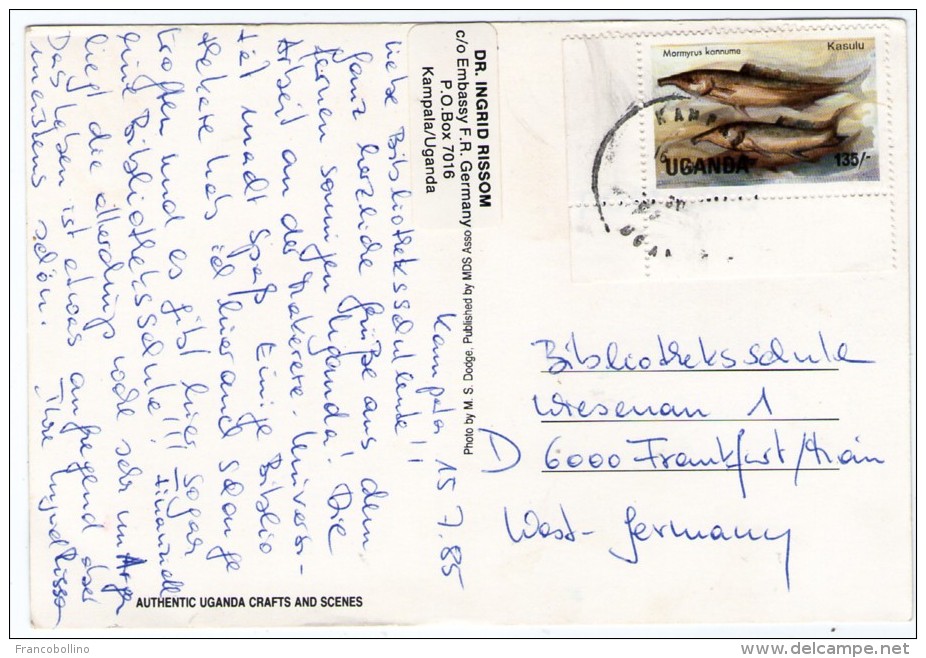 Kampala, 15.7.85
Liebe Bibliotheksschulleute!
Ganz herzliche Grüße aus dem
fernen sonnigen Uganda! Die
Arbeit an der Makerere-Universi-
tät macht Spaß. Einige Biblio
thekare hab ich hier auch schon ge
troffen und es gibt hier sogar
eine Bibliotheksschule!!! Finanziell
liegt die allerdings noch sehr im Argen
Das Leben ist etwas aufregend aber
meistens schön.
Ihre Ingrid Rissom
DR. INGRID RISSOM
c/o Embassy F.R. Germany
P.O.Box 7016
Kampala/Uganda
Photo by M. S. Dodge, Published by MDS Asso
AUTHENTIC UGANDA CRAFTS AND SCENES
Mormyrus kannume
Kasulu
UGANDA
135/-
KAMP
Bibliotheksschule
Wiesenau 1
D 6000 Frankfurt/Main
West-Germany
Francobollino
delcampe.net